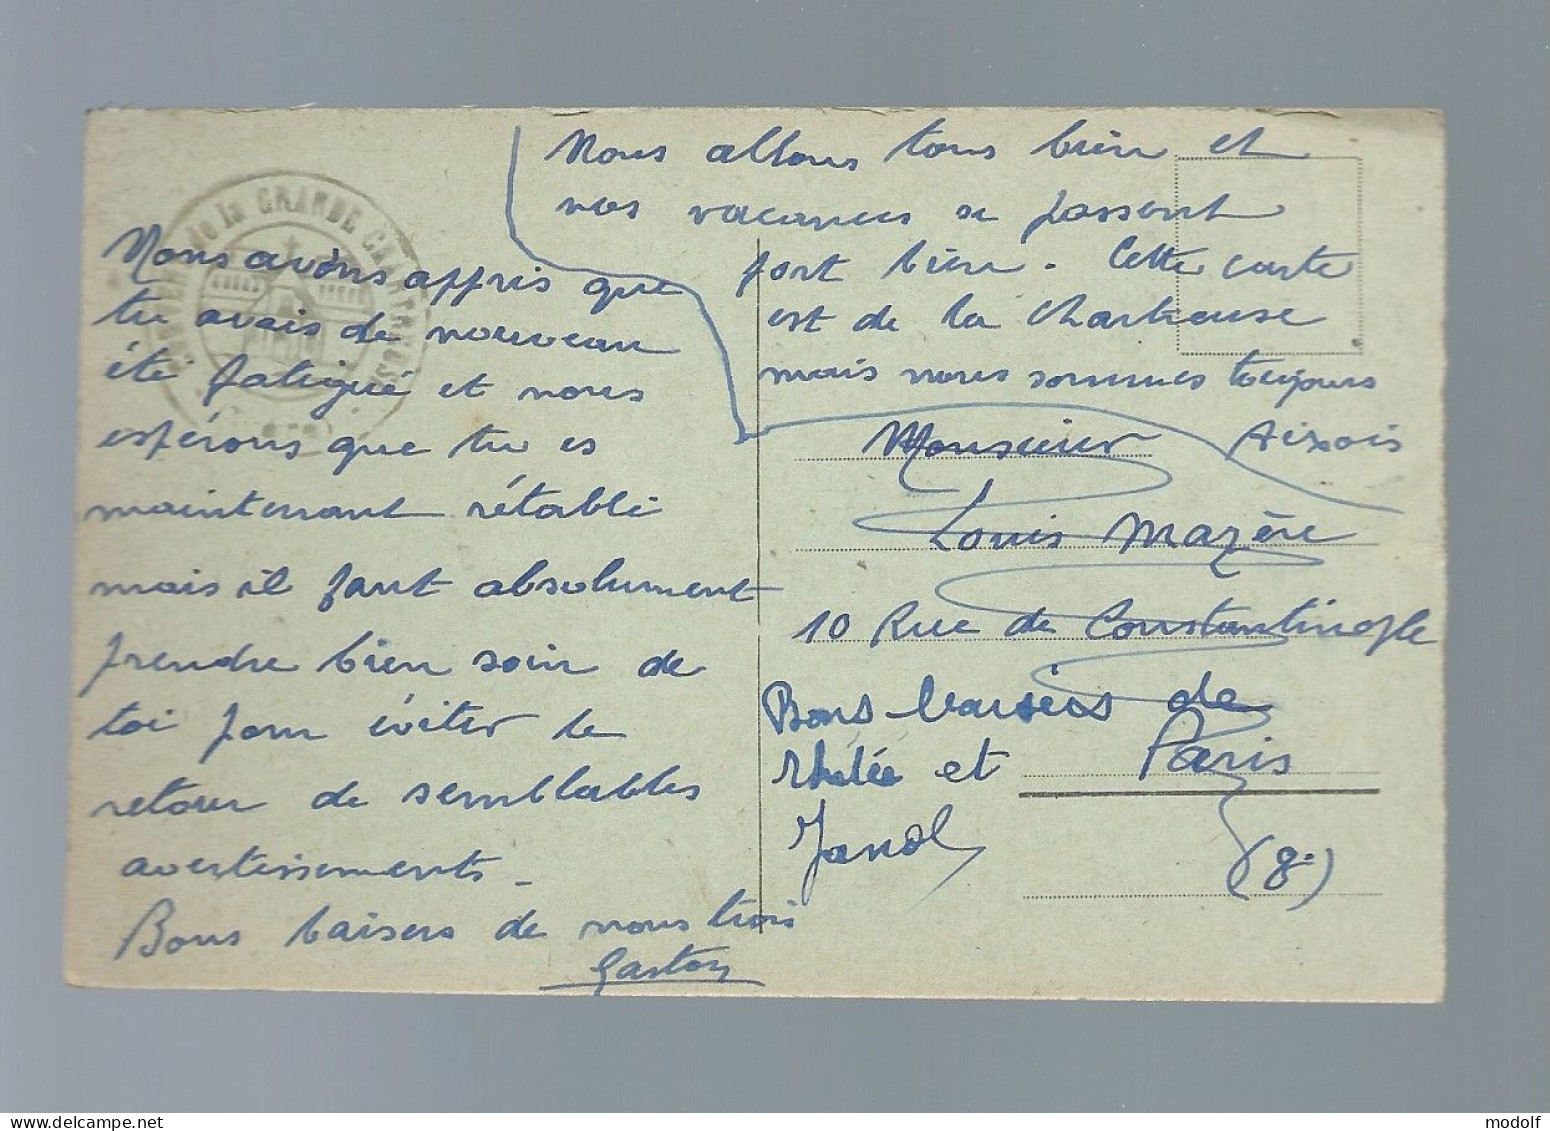 de la GRANDE CHARTREUSE
Nous avons appris que
tu avais de nouveau
été fatigué et nous
espérons que tu es
maintenant rétabli
mais il faut absolument
prendre bien soin de
toi pour éviter le
retour de semblables
avertissements _
Bons baisers de nous trois
Gaston
Nous allons tous bien et
nos vacances se passent
fort bien. Cette carte
est de la Chartreuse
mais nous sommes toujours
Aixois
Monsieur
Louis Mazère
10 Rue de Constantinople
Paris
(8e)
Bons baisers de
et
modolf